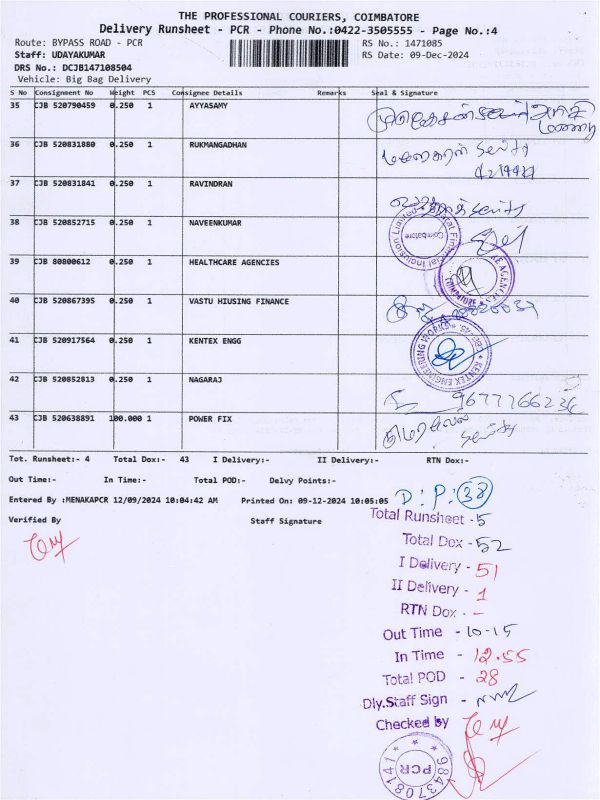 THE PROFESSIONAL COURIERS, COIMBATORE
Delivery Runsheet - PCR - Phone No.:0422-3505555 - Page No.:4
Route: BYPASS ROAD - PCR
RS No.: 1471085
Staff: UDAYAKUMAR
RS Date: 09-Dec-2024
DRS No.: DCJB147108504
Vehicle: Big Bag Delivery
S No Consignment No Weight PCS Consignee Details Remarks Seal & Signature
35 CJB 520790459 0.250 1 AYYASAMY
36 CJB 520831880 0.250 1 RUKMANGADHAN
37 CJB 520831841 0.250 1 RAVINDRAN
38 CJB 520852715 0.250 1 NAVEENKUMAR
39 CJB 80800612 0.250 1 HEALTHCARE AGENCIES
40 CJB 520867395 0.250 1 VASTU HIUSING FINANCE
41 CJB 520917564 0.250 1 KENTEX ENGG
KENTEX ENGINEERING WORKS
42 CJB 520852813 0.250 1 NAGARAJ
9677766236
43 CJB 520638891 100.000 1 POWER FIX
Tot. Runsheet:- 4 Total Dox:- 43 I Delivery:- II Delivery:- RTN Dox:-
Out Time:- In Time:- Total POD:- Delvy Points:-
Entered By :MENAKAPCR 12/09/2024 10:04:42 AM Printed On: 09-12-2024 10:05:05
D:P:38
Verified By Staff Signature
Total Runsheet - 5
Total Dox - 52
I Delivery - 51
II Delivery - 1
RTN Dox - -
Out Time - 10-15
In Time - 12.55
Total POD - 28
Dly.Staff Sign -
Checked by
PCR
9843708141